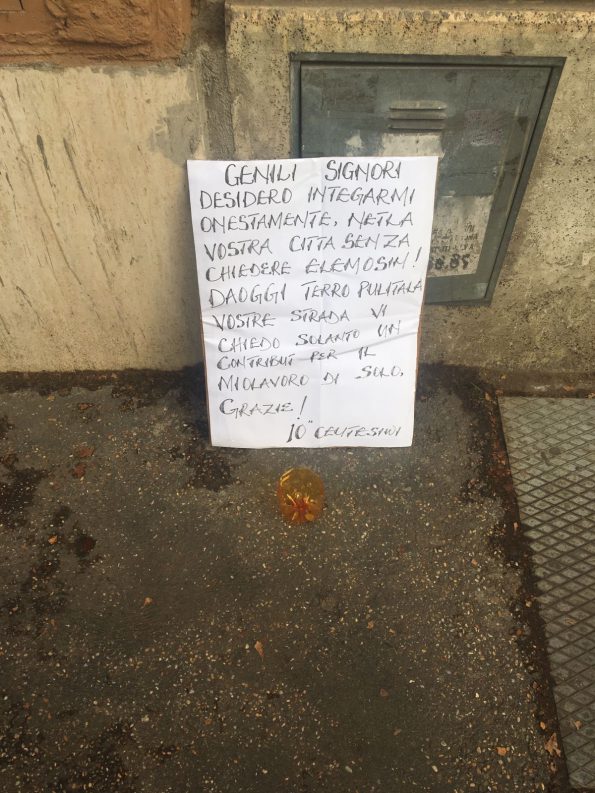 GENILI SIGNORI
DESIDERO INTEGARMI
ONESTAMENTE, NETLA
VOSTRA CITTA SENZA
CHIEDERE ELEMOSIN!
DAOGGI TERRO PULITALA
VOSTRE STRADA VI
CHIEDO SOLANTO UN
CONTRIBUT PER IL
MIOLAVORO DI SOLO,
GRAZIE!
10" CENTESIMI